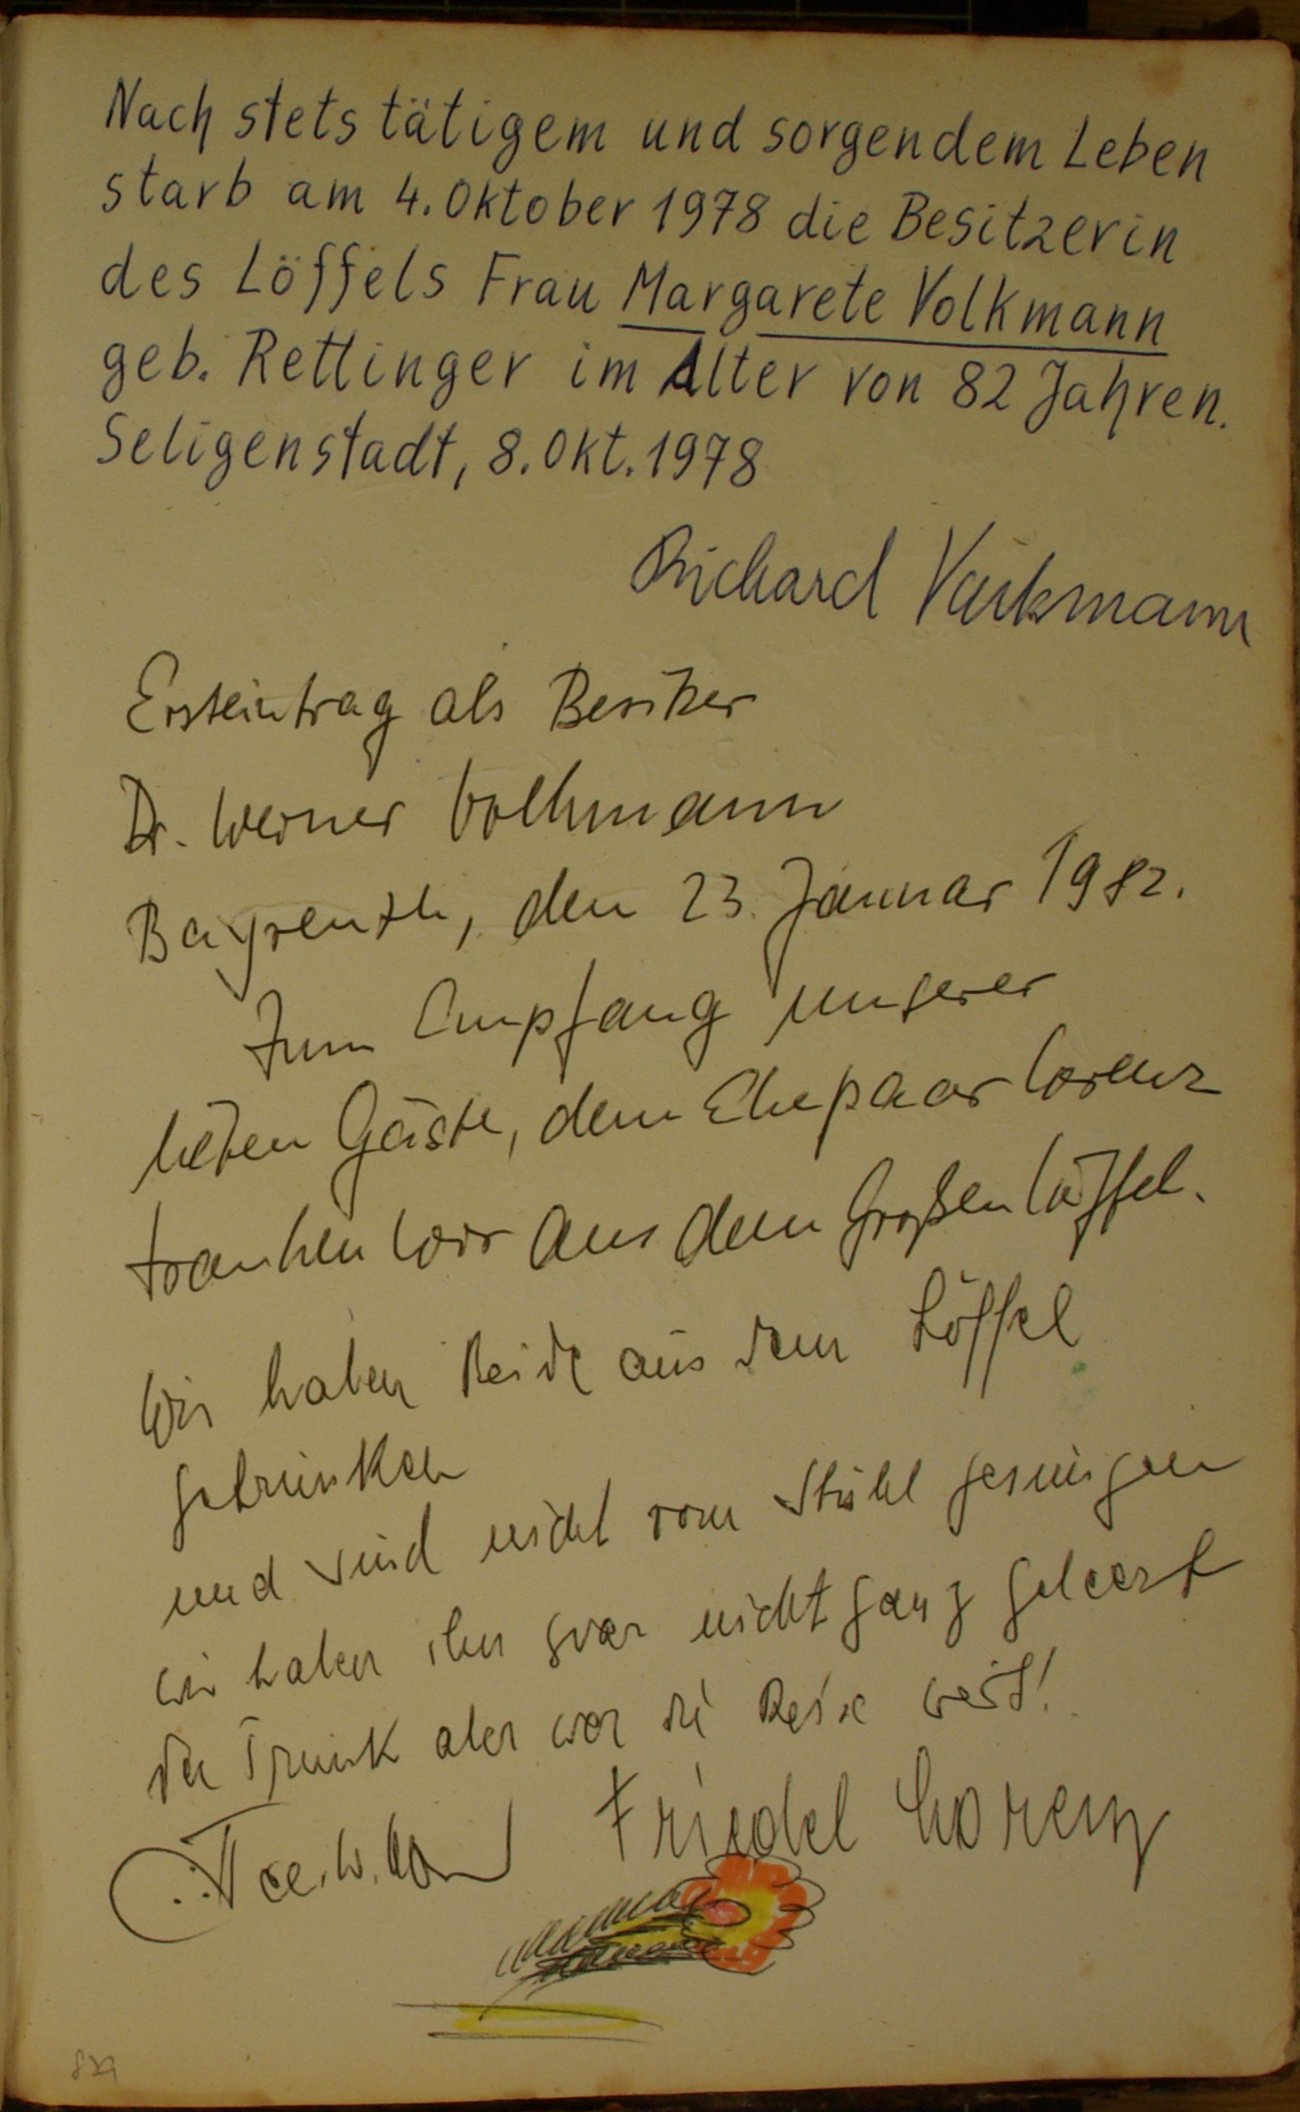 Nach stets tätigem und sorgendem Leben
starb am 4. Oktober 1978 die Besitzerin
des Löffels Frau Margarete Volkmann
geb. Rettinger im Alter von 82 Jahren.
Seligenstadt, 8. Okt. 1978
Richard Volkmann
Ersteintrag als Besitzer
Dr. Werner Volkmann
Bayreuth, den 23. Januar 1982.
Zum Empfang unserer
lieben Gäste, dem Ehepaar Lorenz
tranken wir aus dem Großen Löffel.
Wir haben Beide aus dem Löffel
getrunken
und sind nicht vom Stuhl gesunken
wir haben ihn zwar nicht ganz geleert
der Trunk aber war die Reise wert!
Friedel Lorenz
829